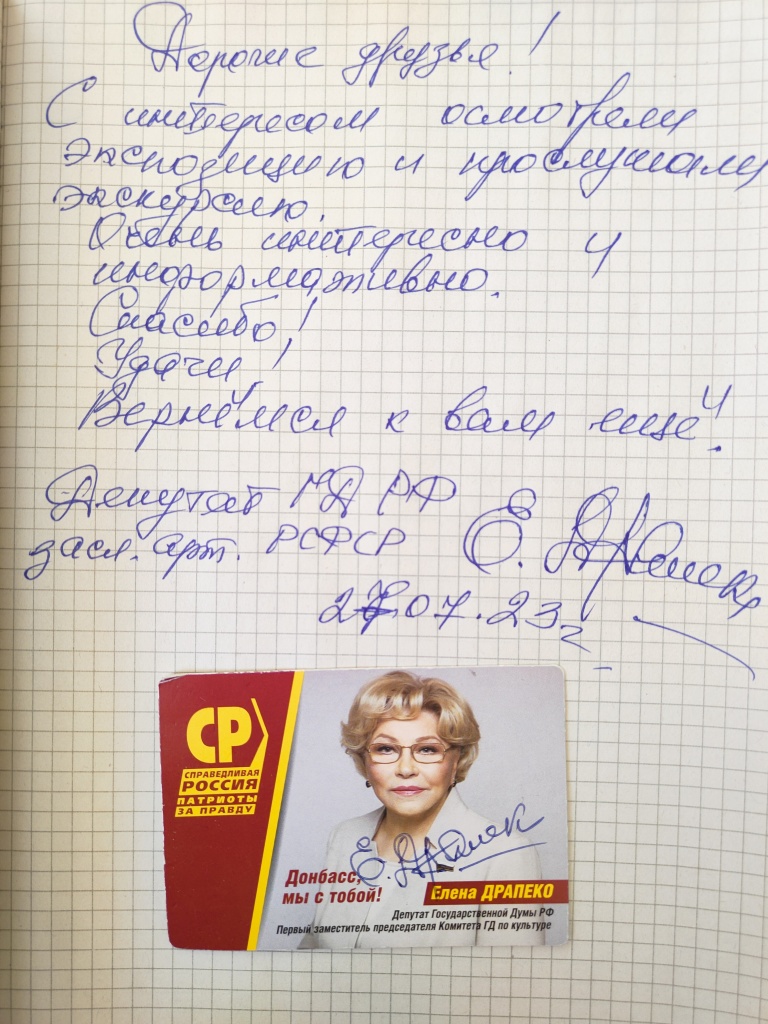 Дорогие друзья!
С интересом осмотрели
экспозицию и прослушали
экскурсию.
Очень интересно и
информативно.
Спасибо!
Удачи!
Вернёмся к вам ещё!
Депутат ГД РФ
засл. арт. РСФСР Е. Драпеко
07.23г
СР
СПРАВЕДЛИВАЯ
РОССИЯ
ПАТРИОТЫ
ЗА ПРАВДУ
Е. Драпек
Донбасс,
мы с тобой!
Елена ДРАПЕКО
Депутат Государственной Думы РФ
Первый заместитель председателя Комитета ГД по культуре